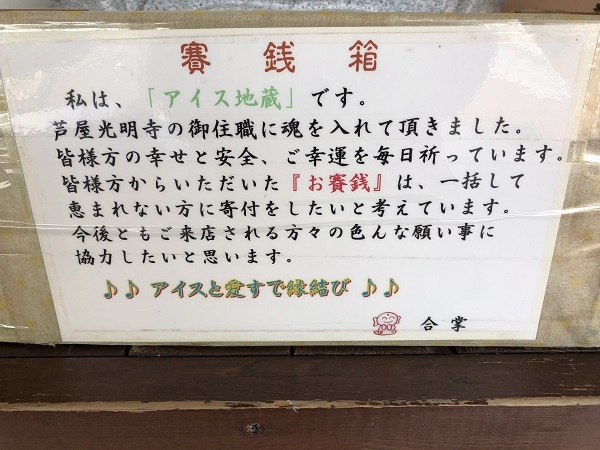 賽銭箱
私は、「アイス地蔵」です。
芦屋光明寺の御住職に魂を入れて頂きました。
皆様方の幸せと安全、ご幸運を毎日祈っています。
皆様方からいただいた『お賽銭』は、一括して
恵まれない方に寄付をしたいと考えています。
今後ともご来店される方々の色んな願い事に
協力したいと思います。
♪♪ アイスと愛すで縁結び ♪♪
合掌